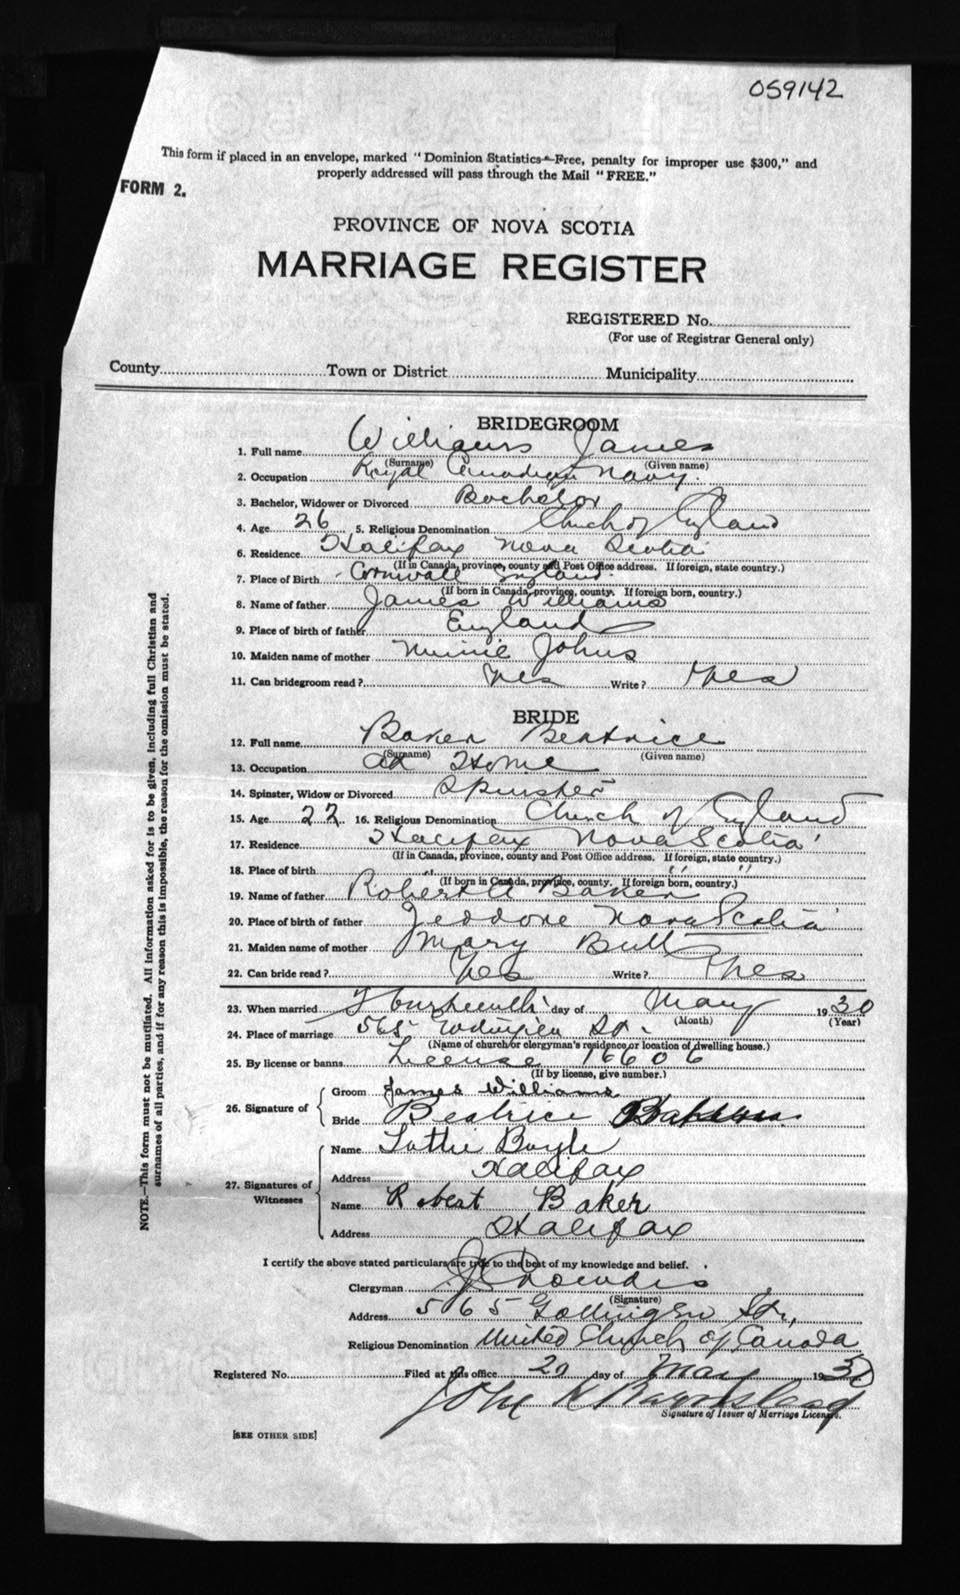 059142
This form if placed in an envelope, marked "Dominion Statistics—Free, penalty for improper use $300," and
properly addressed will pass through the Mail "FREE."
FORM 2.
PROVINCE OF NOVA SCOTIA
MARRIAGE REGISTER
REGISTERED No.
(For use of Registrar General only)
County Town or District Municipality
BRIDEGROOM
1. Full name Williams James
(Surname) (Given name)
2. Occupation Royal Canadian Navy.
3. Bachelor, Widower or Divorced Bachelor
4. Age 26 5. Religious Denomination Church of England
6. Residence Halifax Nova Scotia
(If in Canada, province, county and Post Office address. If foreign, state country.)
7. Place of Birth Cornwall England.
(If born in Canada, province, county. If foreign born, country.)
8. Name of father James Williams
9. Place of birth of father England
10. Maiden name of mother Minnie Johns
11. Can bridegroom read? Yes Write? Yes
BRIDE
12. Full name Baker Beatrice
(Surname) (Given name)
13. Occupation at Home
14. Spinster, Widow or Divorced Spinster
15. Age 22 16. Religious Denomination Church of England
17. Residence Halifax Nova Scotia
(If in Canada, province, county and Post Office address. If foreign, state country.)
18. Place of birth " " "
(If born in Canada, province, county. If foreign born, country.)
19. Name of father Robert A Baker
20. Place of birth of father Jeddore Nova Scotia
21. Maiden name of mother Mary Bull
22. Can bride read? Yes Write? Yes
23. When married Fourteenth day of May 1930
(Month) (Year)
24. Place of marriage 565 St.
(Name of church or clergyman's residence or location of dwelling house.)
25. By license or banns License 16606
(If by license, give number.)
26. Signature of Groom James Williams
Bride Beatrice
27. Signatures of Witnesses Name Lottie Boyle
Address Halifax
Name Robert Baker
Address Halifax
I certify the above stated particulars are true to the best of my knowledge and belief.
Clergyman
(Signature)
Address 565 Gottingen St.,
Religious Denomination United Church of Canada
Registered No. Filed at this office 20 day of May 1930
John
Signature of Issuer of Marriage Licenses.
[SEE OTHER SIDE]
NOTE.—This form must not be mutilated. All information asked for is to be given, including full Christian and
surnames of all parties, and if for any reason this is impossible, the reason for the omission must be stated.